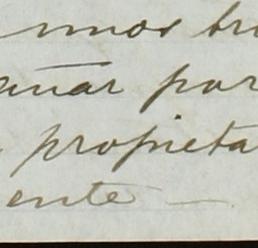 mos tra
añar por
propieta
ente —